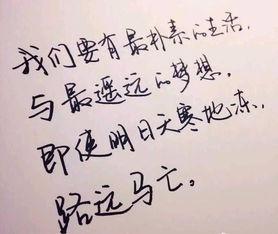 我们要有最朴素的生活,
与最遥远的梦想。
即使明日天寒地冻,
路远马亡。